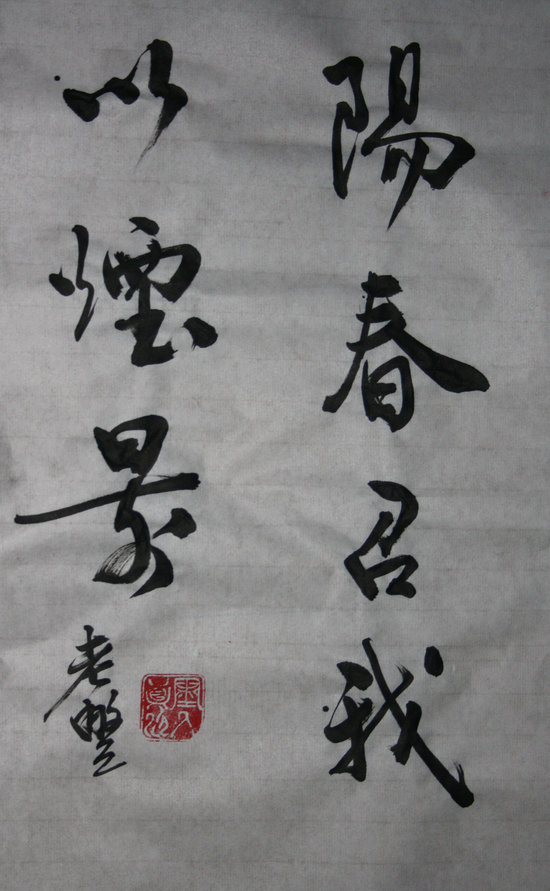 陽春召我
以煙景